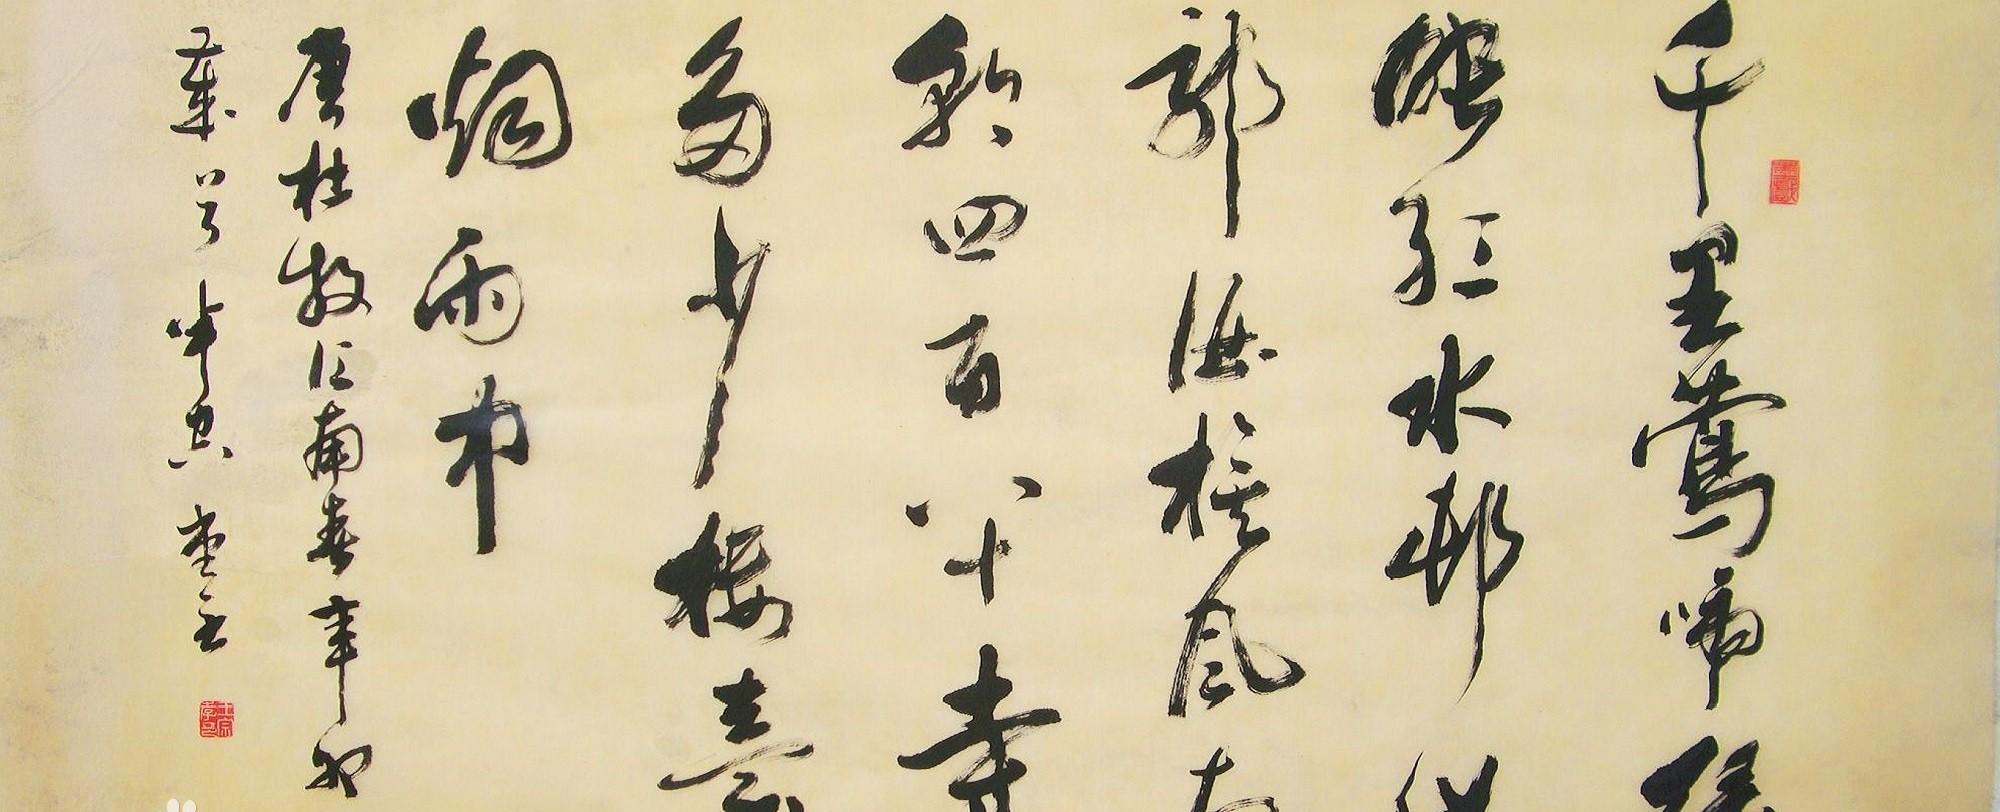 千里莺啼绿
映红水邨山
郭酒旗风南
朝四百八十寺
多少楼台
烟雨中
唐杜牧江南春辛卯